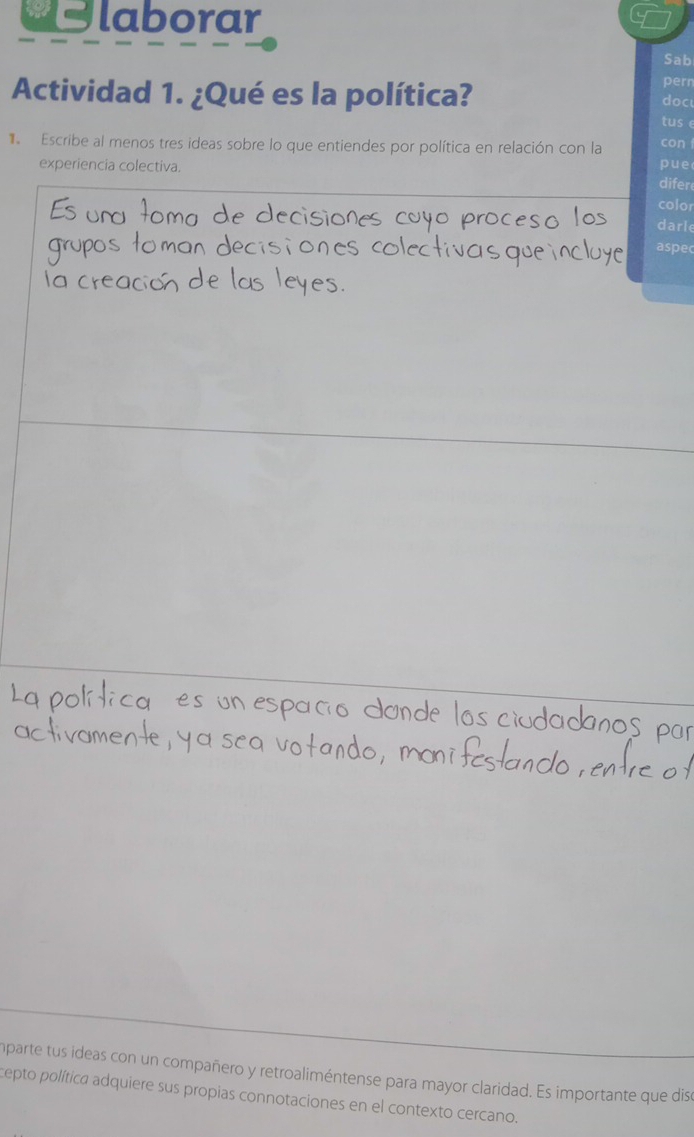 Elaborar
Actividad 1. ¿Qué es la política?
1. Escribe al menos tres ideas sobre lo que entiendes por política en relación con la
experiencia colectiva.
Es una toma de decisiones cuyo proceso los
grupos toman decisiones colectivas que incluye
la creación de las leyes.
La política es un espacio donde los ciudadanos par
activamente, ya sea votando, manifestando, entre ot
mparte tus ideas con un compañero y retroaliméntense para mayor claridad. Es importante que dis
cepto política adquiere sus propias connotaciones en el contexto cercano.
Sab
per
doc
tus
con
pue
difer
color
darle
aspec